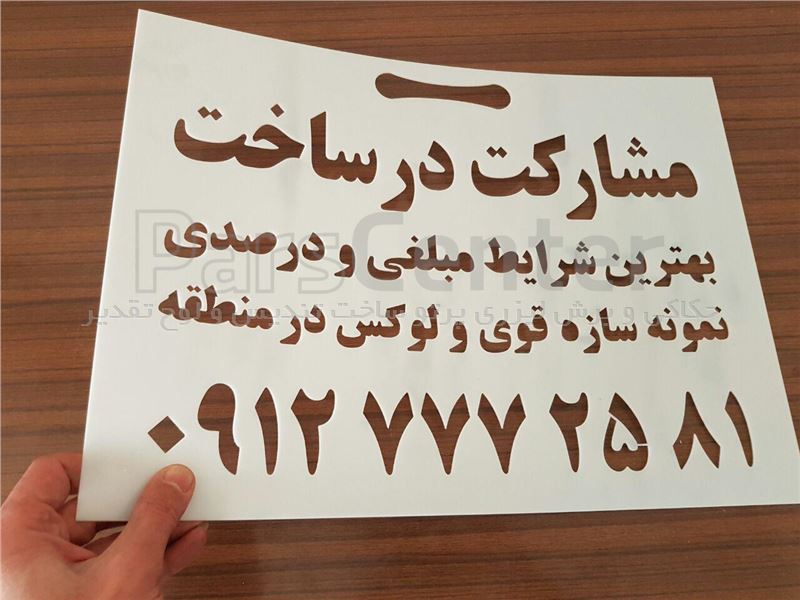 مشارکت در ساخت
بهترین شرایط مبلغی و درصدی
ParsCenter
حکاکی و برش لیزری پرتو ساخت تندیس و لوح تقدیر
نمونه سازه قوی و لوکس در منطقه
۰۹۱۲ ۷۷۷ ۲۵ ۸۱